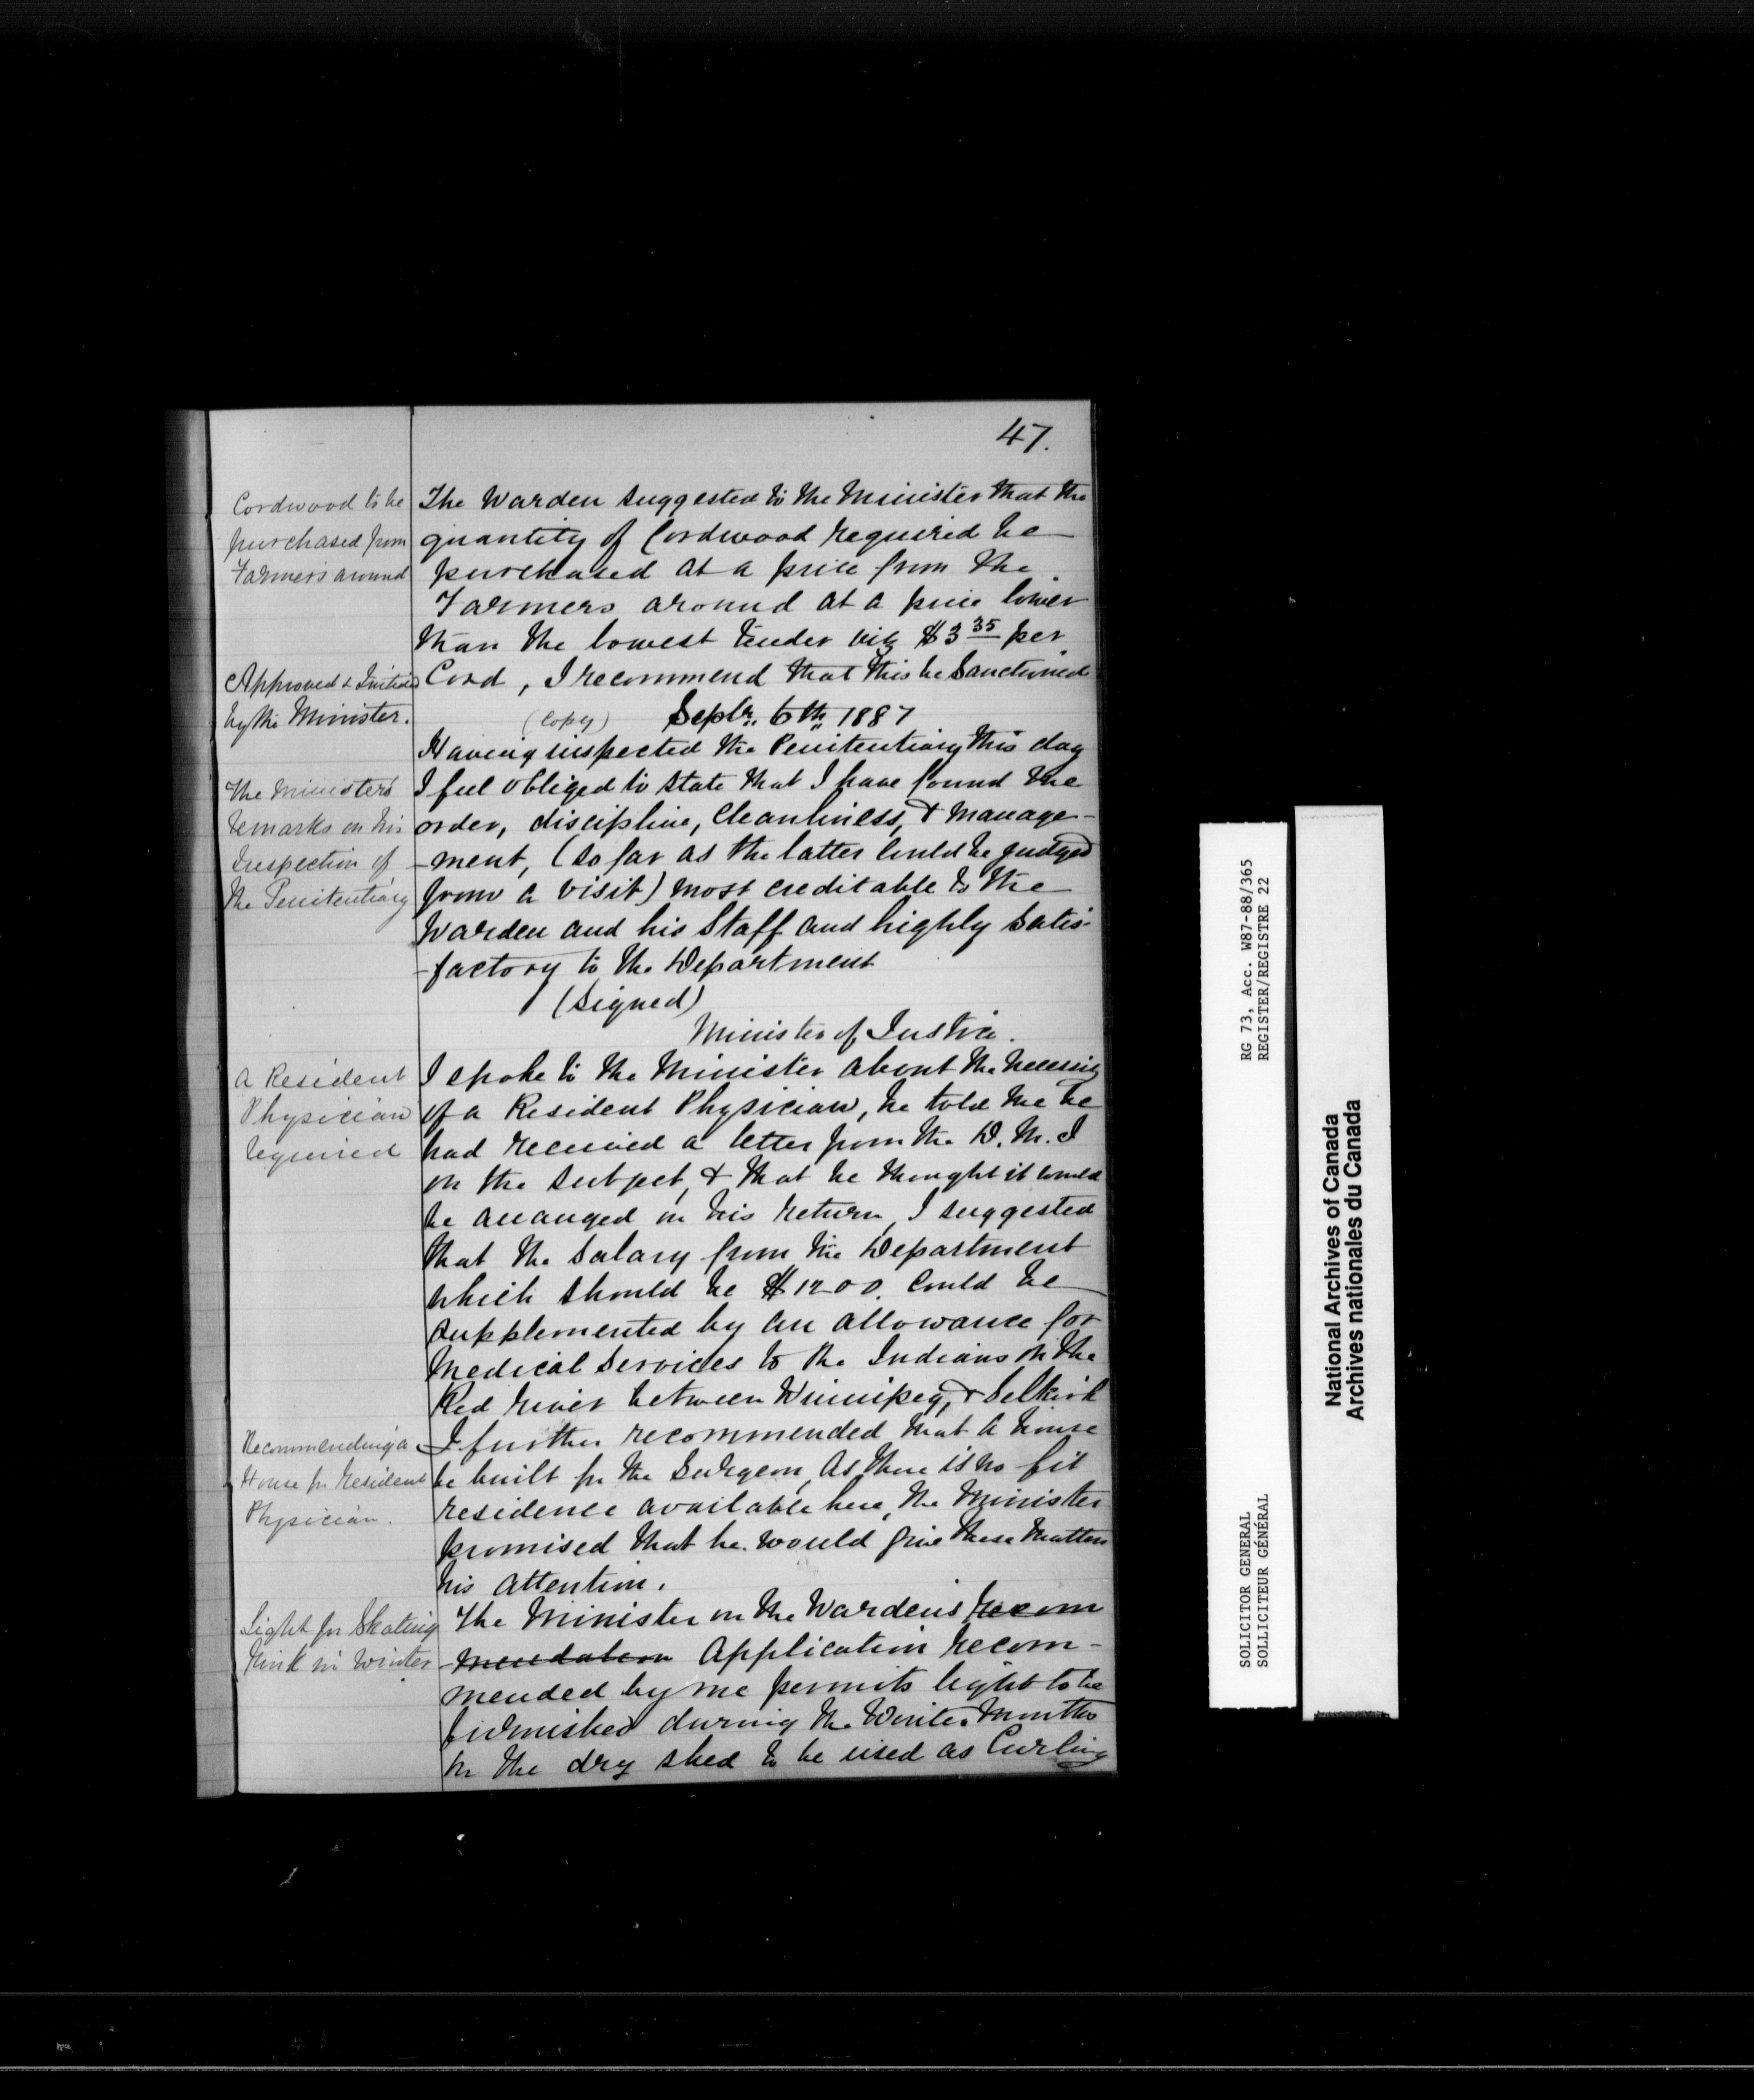 47.
Cordwood to be
purchased from
Farmers around
The Warden suggested to the Minister that the
quantity of Cordwood required be
purchased at a price from the
Farmers around at a price lower
than the lowest tender viz $3 35 per
Cord, I recommend that this be Sanctioned
Approved & Initialed
by the Minister.
(Copy) Septr. 6th 1887
Having inspected the Penitentiary this day
I feel obliged to state that I have found the
order, discipline, Cleanliness, & manage-
-ment, (so far as the latter could be judged
from a visit) most creditable to the
Warden and his Staff and highly satis-
-factory to the Department
(Signed)
Minister of Justice.
The Ministers
remarks on his
Inspection of
the Penitentiary
I spoke to the Minister about the necessity
of a Resident Physician, he told me he
had received a letter from the D. M. J
on the subject, & that he thought it could
be arranged on his return, I suggested
that the salary from the Department
which should be $1200. could be
supplemented by an allowance for
Medical Services to the Indians on the
Red river between Winnipeg, & Selkirk
A Resident
Physician
required
I further recommended that a house
be built for the Surgeon, as there is no fit
residence available here, the Minister
promised that he would give these matters
his attention.
Recommending a
House for resident
Physician.
The Minister on the Wardens recom
-mendation Application recom-
mended by me permits light to be
furnished during the Winter months
in the dry shed to be used as Curling
Light for Skating
rink in Winter
RG 73, Acc. W87-88/365
REGISTER/REGISTRE 22
SOLICITOR GENERAL
SOLLICITEUR GÉNÉRAL
National Archives of Canada
Archives nationales du Canada